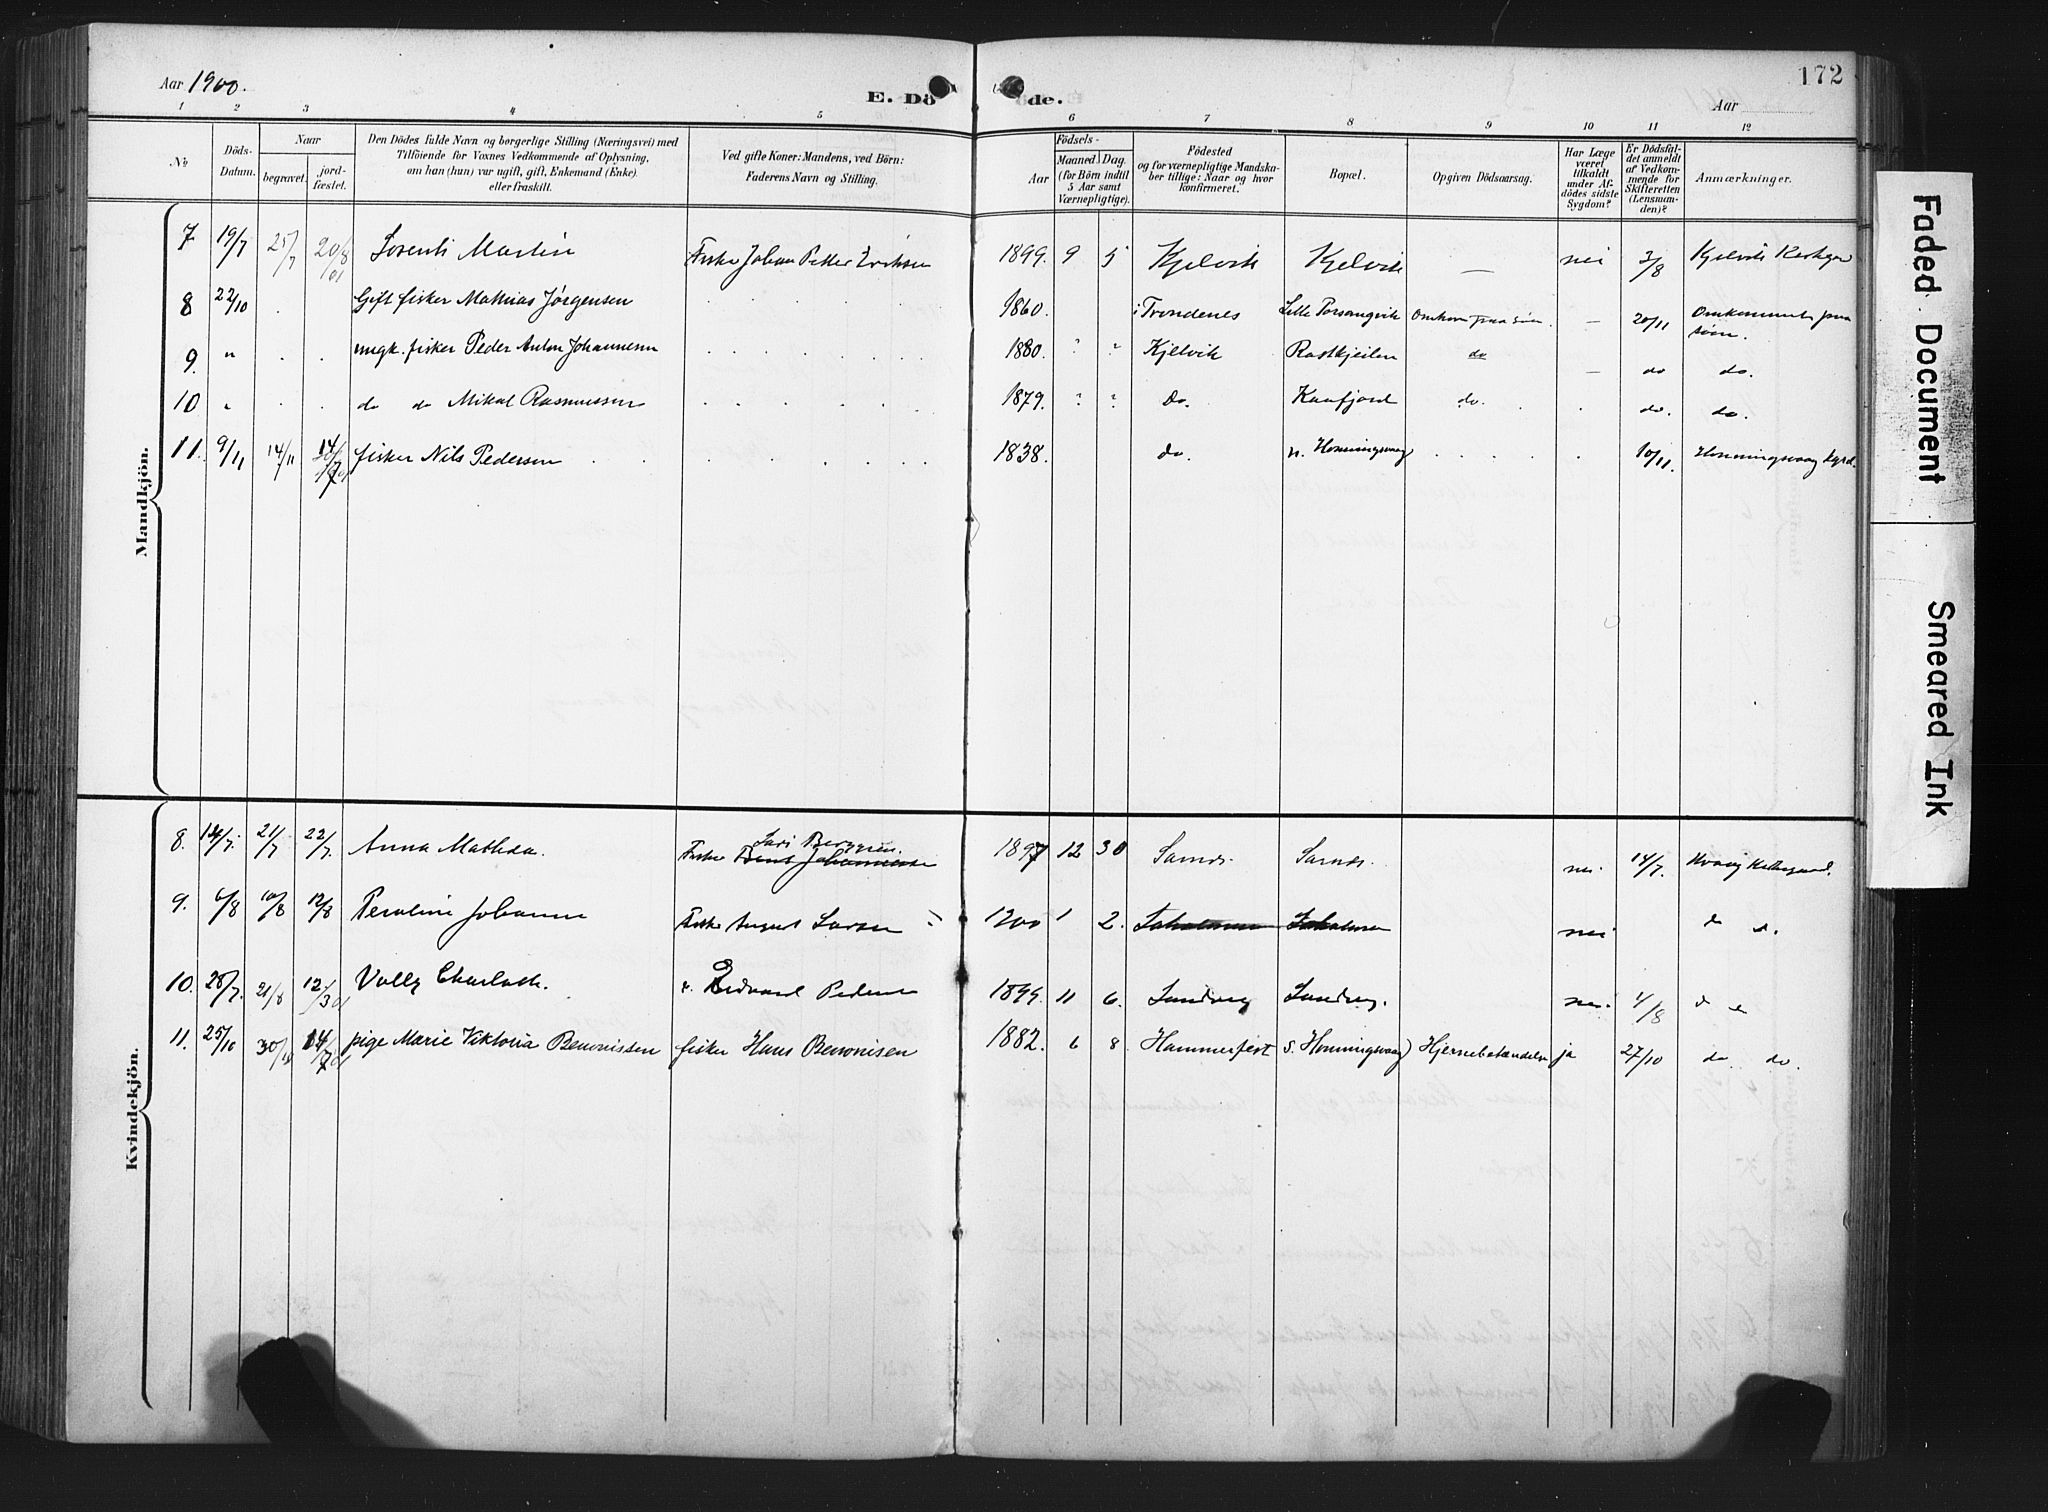 Aar 1900.
E. Döde.
172
Aar
1 2 3 4 5 6 7 8 9 10 11 12
No
Döds-Datum.
Naar
begravet.
jord-fæstet.
Den Dödes fulde Navn og borgerlige Stilling (Næringsvei) med
Tilföiende for Voxnes Vedkommende af Oplysning,
om han (hun) var ugift, gift, Enkemand (Enke)
eller fraskilt.
Ved gifte Koner: Mandens, ved Börn:
Faderens Navn og Stilling.
Födsels-
Aar
Maaned. Dag.
(for Börn indtil
5 Aar samt
Værnepligtige).
Födested
og for værnepligtige Mandska-
ber tillige: Naar og hvor
konfirmeret.
Bopæl.
Opgiven Dödsaarsag.
Har Læge
været
tilkaldt
under Af-
dödes sidste
Sygdom?
Er Dödsfal-
det anmeldt
af Vedkom-
mende for
Skifteretten
(Lensman-
den)?
Anmærkninger.
Mandkjön.
7 19/7 25/7 20/8 01 Lorents Martin Fisker Johan Petter Eriksen 1899. 9 5 Kjelvik Kjelvik — nei 3/8 Kjelvik
8 22/10 Gift fisker Mathias Jørgensen 1860. i Trondenes Lille Porsangvik Omkom paa søen. — 20/11 Omkommet paa søen.
9. " ungk. fisker Peder Anton Johannesen 1880. " " Kjelvik do — do do.
10 " do do Mikal Rasmussen 1879. " " Do. Kaafjord do. do. do.
11. 9/11 14/11 14/7 01 fisker Nils Pedersen 1838. do. n. Honningsvaag 10/11. Honningsvaag
Kvindekjön.
8. 21/7 22/7. Anna Mathilda. Fisker Berggren. Johannesen 1897 12 30 Sarnæs. Sarnæs. nei. 14/7.
9. 6/8 10/8 12/8 Johanne Fisker August Larsen 1900 1 2. nei d d.
10. 28/7. 21/8 12/3 01 Charlotte. Edvard Pedersen 1899. 11 6. nei. 4/8 d
11. 25/10 30/10 14/7 01 pige Marie Viktoria Benonissen fisker Hans Benonisen 1882. 6 8. Hammerfest S. Honningsvaag Hjernebetændelse ja 27/10 do do.
Faded Document
Smeared Ink